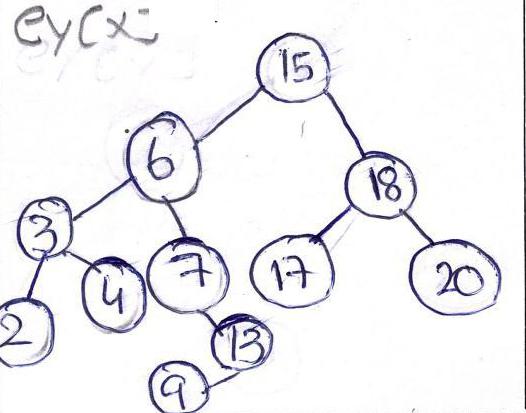 ey(x=
15
6
18
3
7
17
20
4
2
13
9